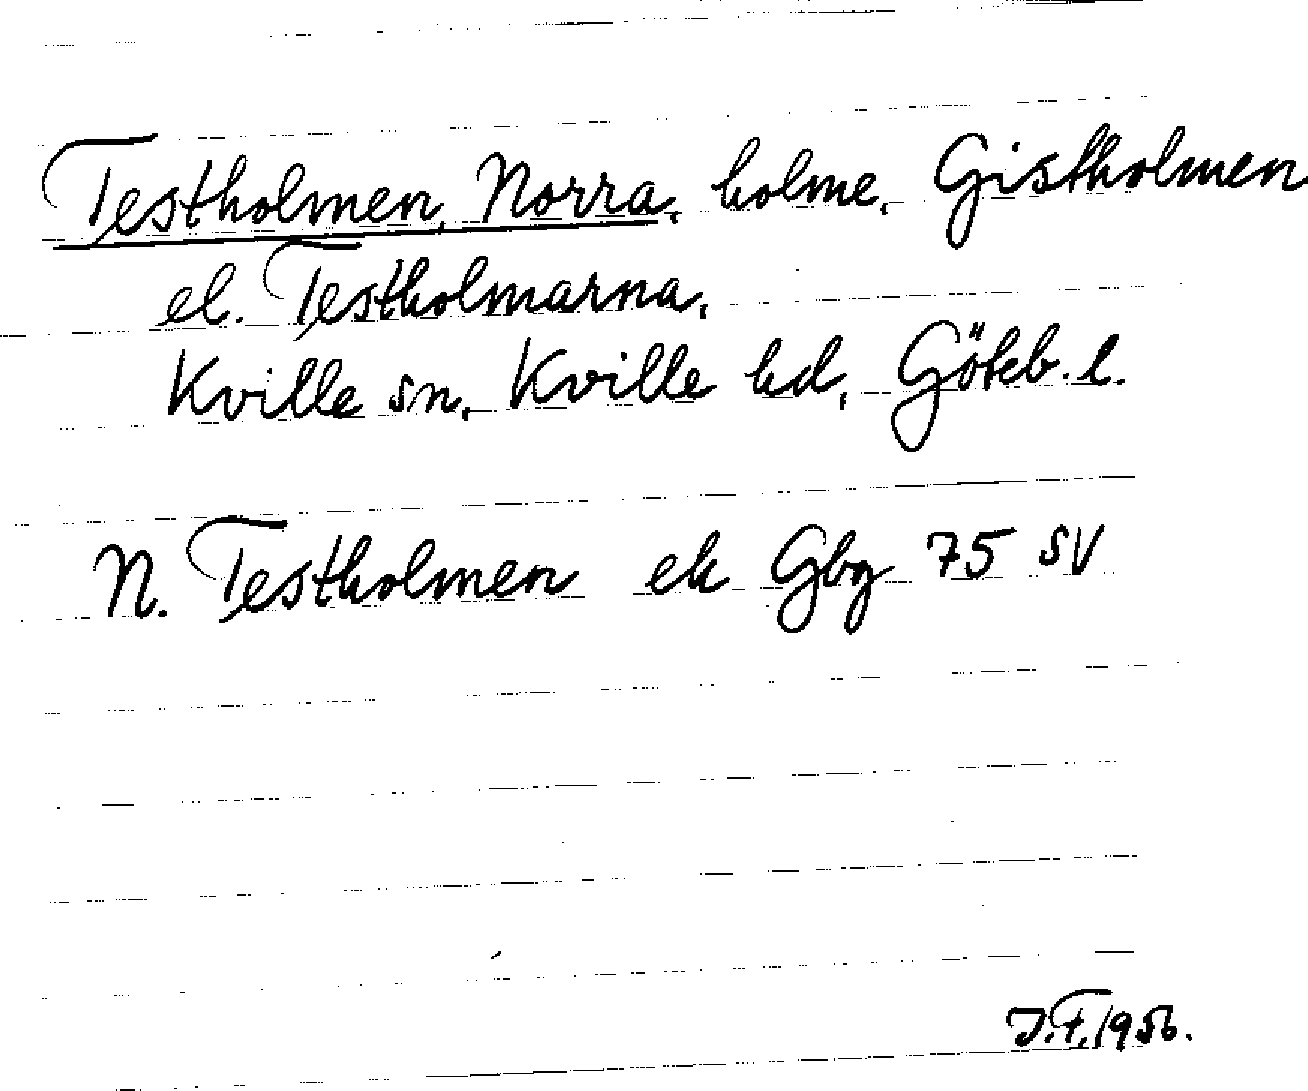 Testholmen, Norra, holme, Gistholmen
el. Testholmarna,
Kville sn, Kville hd, Göteb. l.
N. Testholmen ek Gbg 75 SV
J.F. 1956.